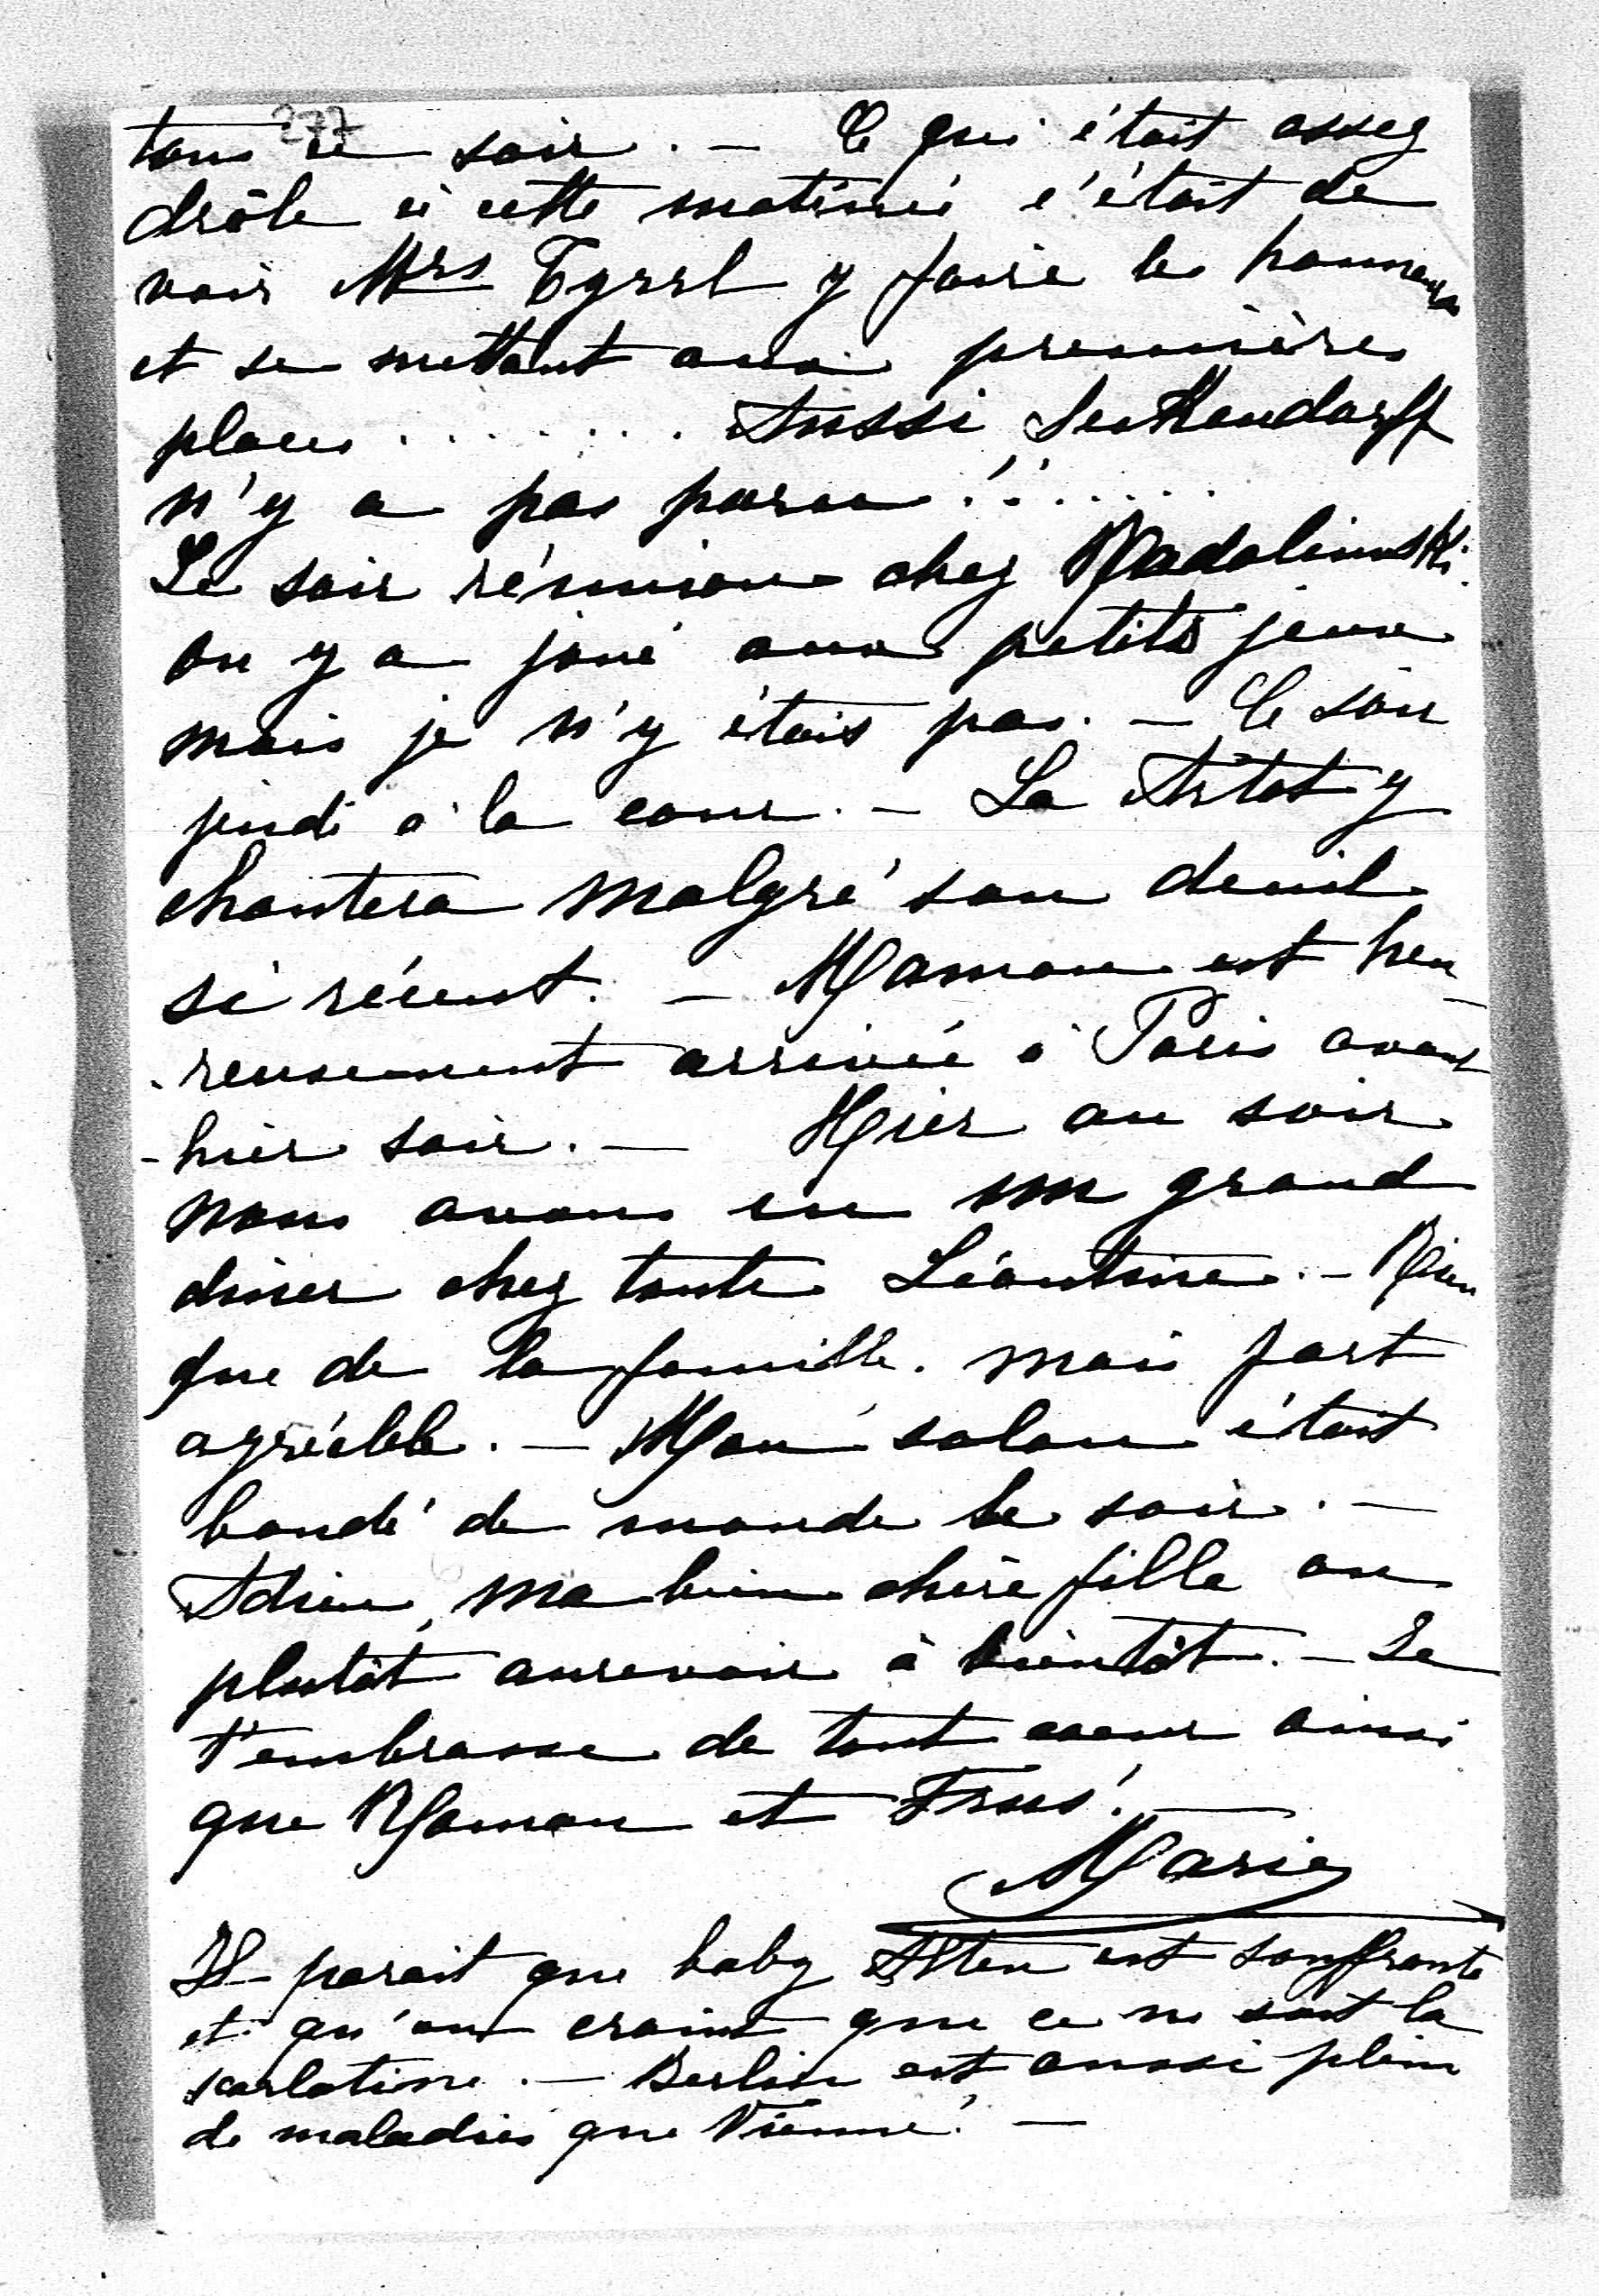 277
tous ce soir. — Ce qui était assez
drôle à cette matinée c'était de
voir Mrs Tyrrl y faire les honneurs
et se mettant aux premières
places . . . . . . . Aussi Seckendorff
n'y a pas paru!! . . . . .
Le soir réunion chez Radolinski.
on y a joué aux petits jeux
mais je n'y étais pas. — Ce soir
jeudi à la cour. — La Artôt y
chantera malgré son deuil
si récent. — Maman est heu-
-reusement arrivée à Paris avant
-hier soir. — Hier au soir
nous avons eu un grand
diner chez tante Léontine. — Rien
que de la famille. mais fort
agréable. — Mon salon était
bondé de monde le soir. —
Adieu, ma bien chère fille ou
plutôt aurevoir à bientôt. — Je
t'embrasse de tout coeur ainsi
que Maman et
Marie
Il parait que baby Alten est souffrante
et qu'on craint que ce ne soit la
scarlatine. — Berlin est aussi plein
de maladies que Vienne! —